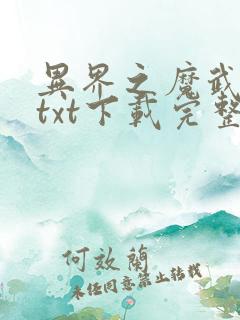 異界之魔武
txt下載完整
何效蘭
未经同意禁止转载